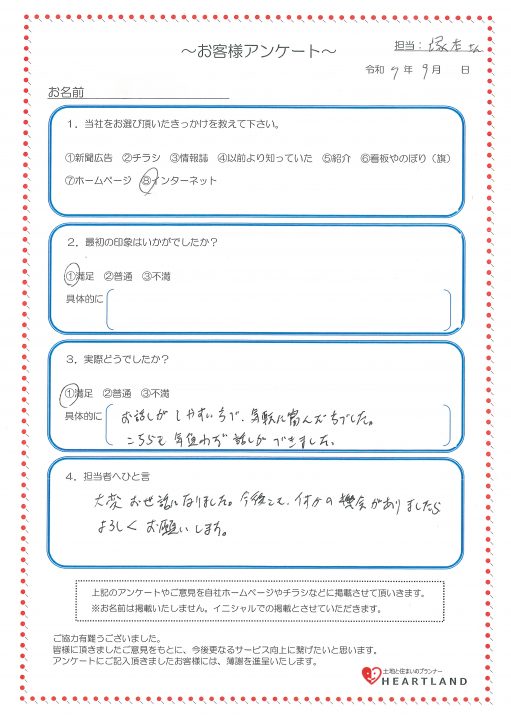 ～お客様アンケート～
担当：塚本さん
令和 7 年 9 月 日
お名前
１．当社をお選び頂いたきっかけを教えて下さい。
①新聞広告 ②チラシ ③情報誌 ④以前より知っていた ⑤紹介 ⑥看板やのぼり（旗）
⑦ホームページ ⑧インターネット
２．最初の印象はいかがでしたか？
①満足 ②普通 ③不満
具体的に
３．実際どうでしたか？
①満足 ②普通 ③不満
具体的に
お話しがしやすい方で、気転に富んだ方でした。
こちらも気負わず話しができました。
４．担当者へひと言
大変お世話になりました。今後とも、何かの機会がありましたら
よろしくお願いします。
上記のアンケートやご意見を自社ホームページやチラシなどに掲載させて頂いきます。
※お名前は掲載いたしません。イニシャルでの掲載とさせていただきます。
ご協力有難うございました。
皆様に頂きましたご意見をもとに、今後更なるサービス向上に繋げたいと思います。
アンケートにご記入頂きましたお客様には、薄謝を進呈いたします。
土地と住まいのプランナー
HEARTLAND